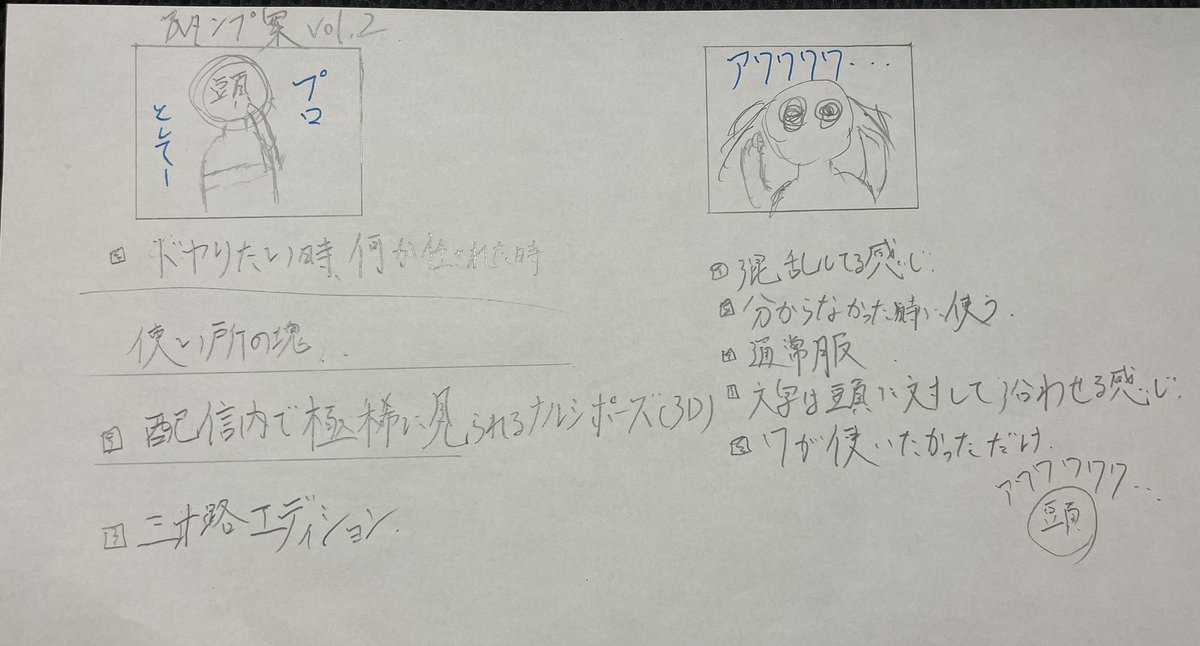 スタンプ案 vol.2
頭
プロ
としてー
ドヤりたい時、何か仕された時
使い所の塊...
配信内で極稀に見られるナルシポーズ(3D)
エディション.
アワワワワ...
混乱してる感じ.
分からなかった時に使う.
通常服
文字は頭に対して沿わせる感じ.
ワが使いたかっただけ.
アワワワワワ...
頭